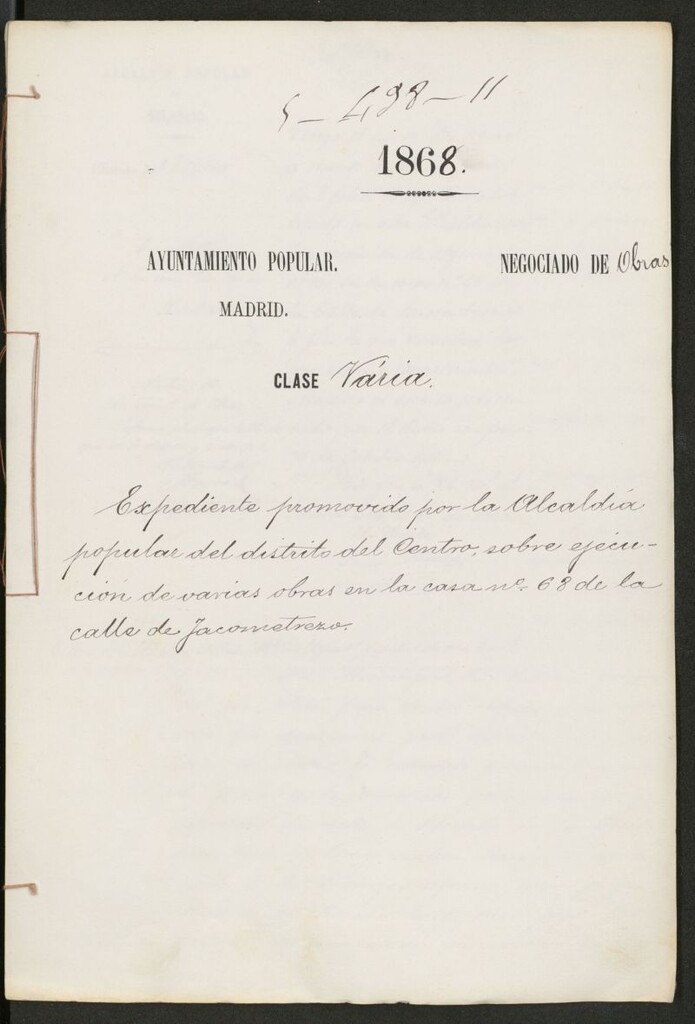 5-498-11
1868.
AYUNTAMIENTO POPULAR. NEGOCIADO DE Obras
MADRID.
CLASE Vária.
Expediente promovido por la Alcaldia
popular del distrito del Centro, sobre ejecu-
ción de varias obras en la casa nº. 68 de la
calle de Jacometrezo.